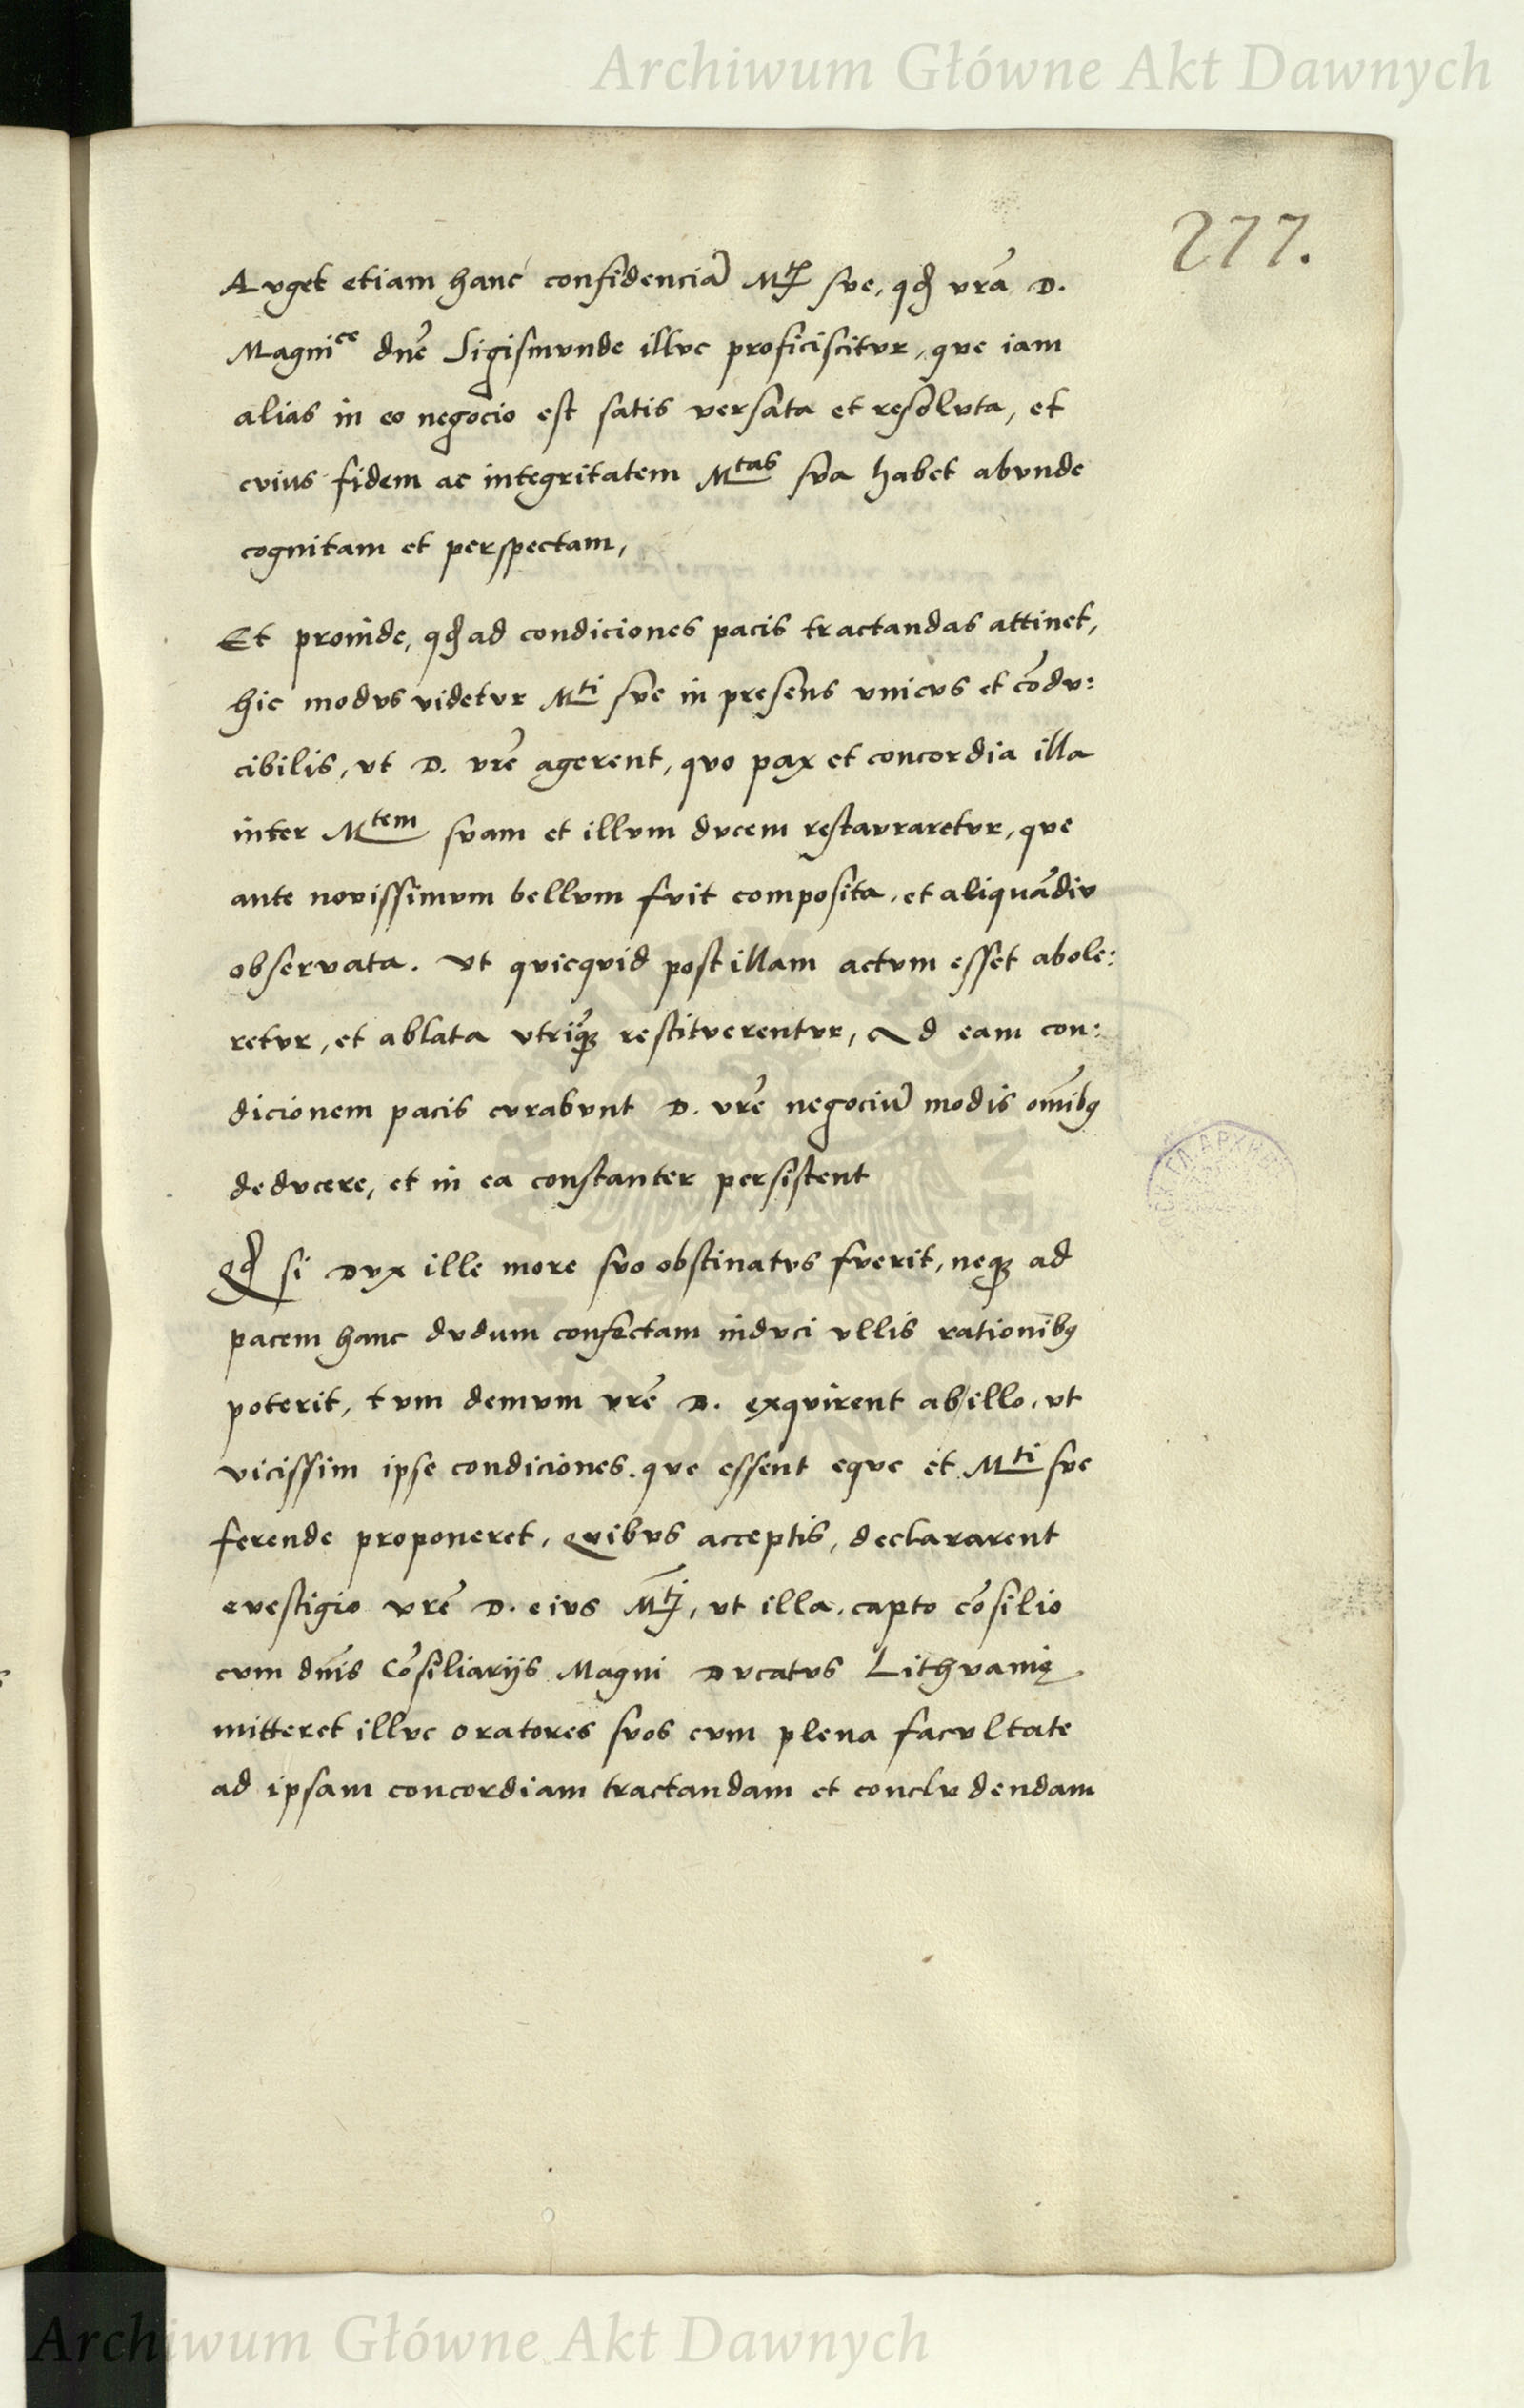 Archiwum Główne Akt Dawnych
277.
Avget etiam hanc confidenciā Mtꝭ sve, qđ vrā D.
Magnice dnē Sigismvnde illvc proficiscitvr, qve iam
alias in eo negocio est satis versata et resolvta, et
cvius fidem ac integritatem Mtas sva habet abvnde
cognitam et perspectam,
Et proinde, qđ ad condiciones pacis tractandas attinet,
hic modvs videtvr Mti sve in presens vnicvs et cōdv:
cibilis, vt D. vrē agerent, qvo pax et concordia illa
inter Mtem svam et illvm dvcem restavraretvr, qve
ante novissimvm bellvm fvit composita, et aliqvādiv
observata. Vt qvicqvid post illam actvm esset abole:
retvr, et ablata vtriqꝫ restitverentvr, Ad eam con:
dicionem pacis cvrabvnt D. vrē negociū modis oīnibꝯ
dedvcere, et in ea constanter persistent
Qđ si Dvx ille more svo obstinatvs fverit, neqꝫ ad
pacem hanc dvdum confectam indvci vllis rationibꝯ
poterit, tvm demvm vrē D. exqvirent ab illo, vt
vicissim ipse condiciones, qve essent eqve et Mti sve
ferende proponeret, Qvibvs acceptis, declararent
evestigio vrē D. eivs Mtj, vt illa, capto cōsilio
cvm dnīs Cōsiliarijs Magni Dvcatvs Lithvanię
mitteret illvc oratores svos cvm plena facvltate
ad ipsam concordiam tractandam et conclvdendam
Archiwum Główne Akt Dawnych